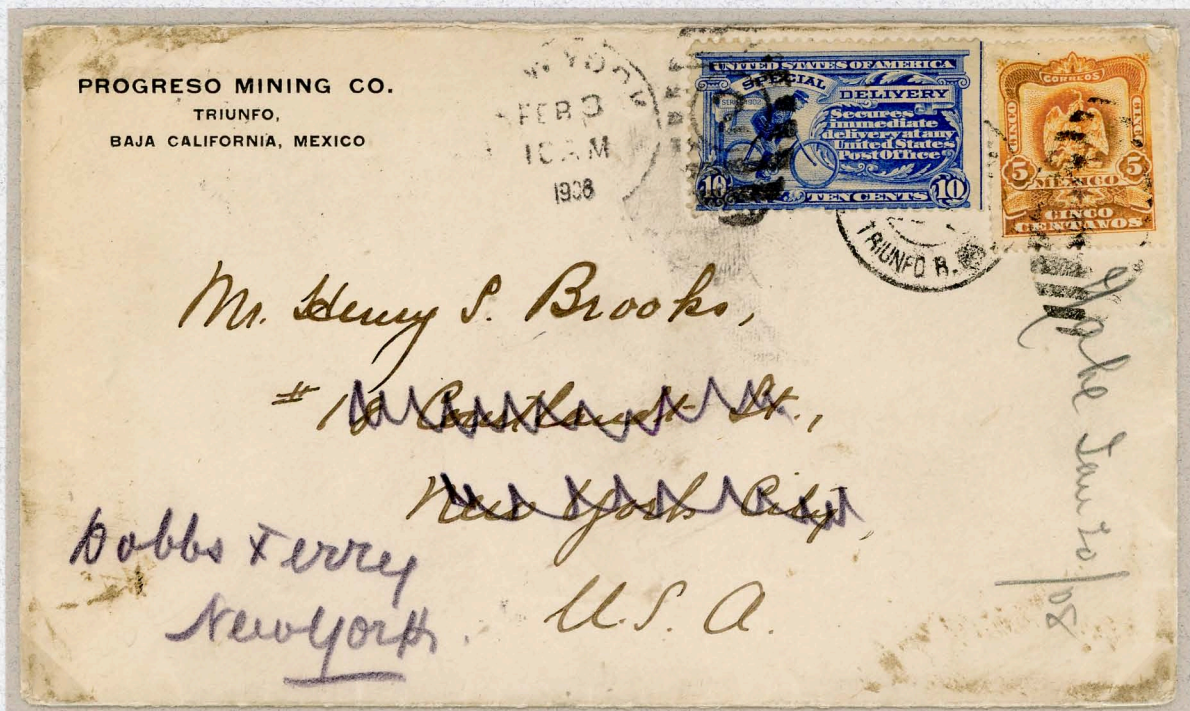 PROGRESO MINING CO.
TRIUNFO,
BAJA CALIFORNIA, MEXICO
FEB 3
10 AM
1908
UNITED STATES OF AMERICA
SPECIAL DELIVERY
Secures
immediate
delivery at any
United States
Post Office
10 TEN CENTS 10
CORREOS
CINCO
CINCO
5 5
MEXICO
CINCO
CENTAVOS
TRIUNFO B.
Mr. Henry S. Brooks,
# Cortlandt St.,
New York City,
U.S.A.
Dobbs Ferry
New York.
Jan 20/08